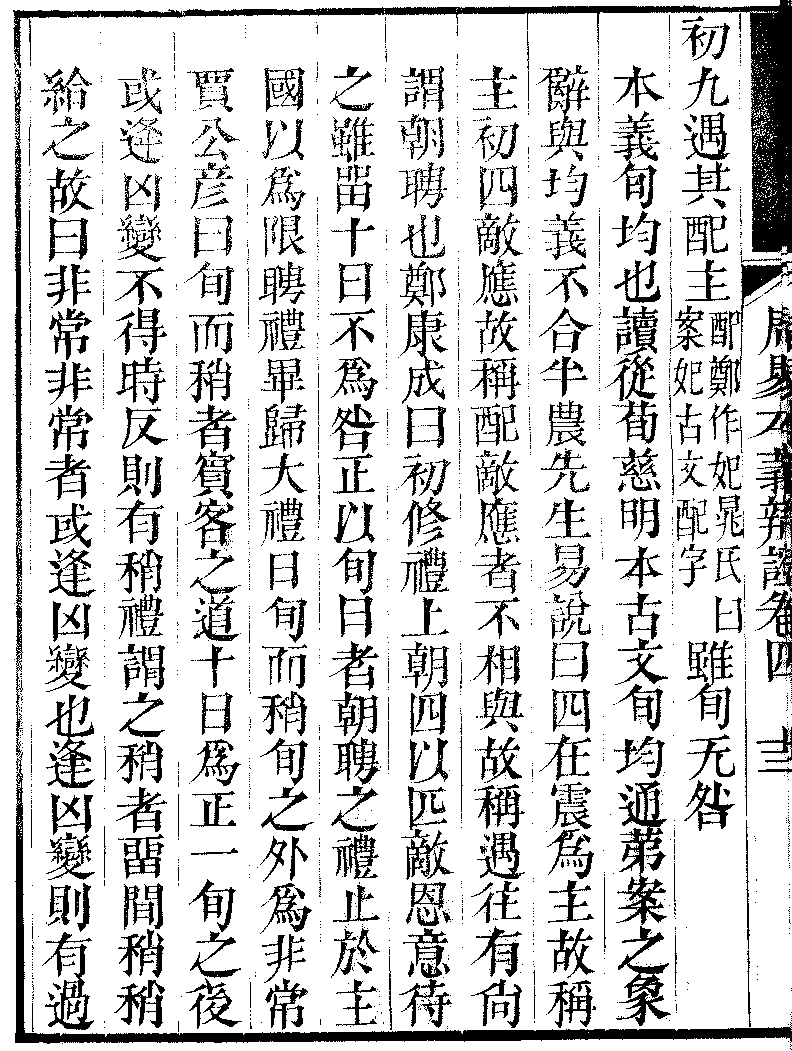 周易本義辨證卷四 十三
初九遇其配主配鄭作妃晁氏曰案妃古文配字雖旬无咎
本義旬均也讀從荀慈明本古文旬均通苐案之象
辭與均義不合半農先生易說曰四在震爲主故稱
主初四敵應故稱配敵應者不相與故稱遇往有尙
謂朝聘也鄭康成曰初修禮上朝四以匹敵恩意待
之雖畱十日不爲咎正以旬日者朝聘之禮止於主
國以爲限聘禮畢歸大禮日旬而稍旬之外爲非常
賈公彦曰旬而稍者賓客之道十日爲正一旬之後
或逢凶變不得時反則有稍禮謂之稍者畱間稍稍
給之故曰非常非常者或逢凶變也逢凶變則有過